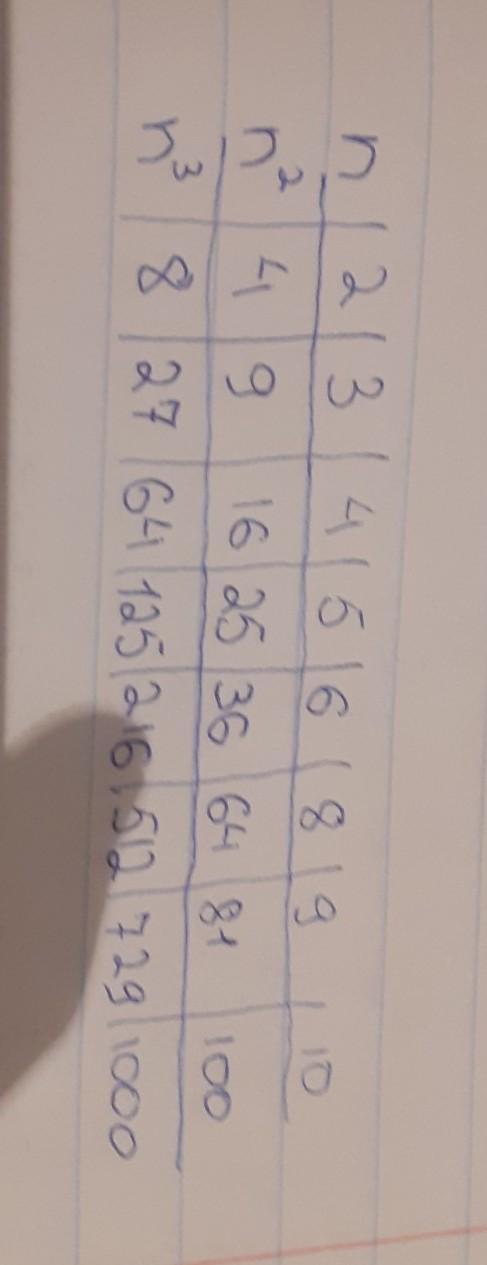 n | 2 | 3 | 4 | 5 | 6 | 8 | 9 | 10
n² | 4 | 9 | 16 | 25 | 36 | 64 | 81 | 100
n³ | 8 | 27 | 64 | 125 | 216 | 512 | 729 | 1000